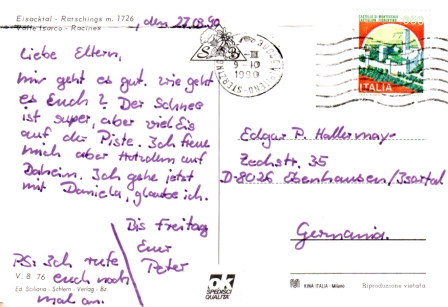 Eisacktal - Ratschings m. 1726
Valle Isarco - Racines
, den 27.02.90
Liebe Eltern,
mir geht es gut. wie geht
es Euch? Der Schnee
ist super, aber viel Eis
auf der Piste. Ich freue
mich aber trotzdem auf
Daheim. Ich gehe jetzt
mit Daniela, glaube ich.
Bis Freitag
Euer
Peter
PS: Ich rufe
euch noch
mal an.
V. 8 76
Ed. Sciliana - Schlern - Verlag - Bz
OK
SPEDISCI
QUALITÀ
9-10
1990
ITALIA
Edgar P. Hallermayer
Zechstr. 35
D-8026 Ebenhausen/Isartal
Germania.
KINA ITALIA - Milano
Riproduzione vietata